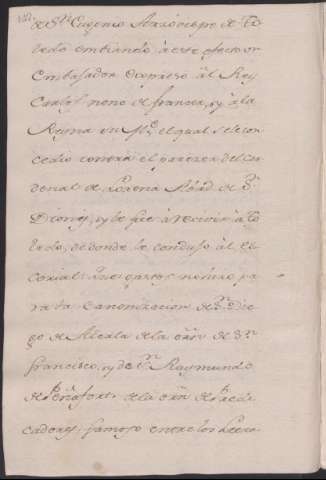 de S.to Eugenio Arzobispo de To
ledo embiando à este efecto vn
Embaxador Expreso àl Rey
Carlos nono de francia, y à la
Reyna su M.e el qual se le con
cedio contra el parecer del Car
denal de Lorena Abad de S.n
Dionis, y le fue à recivir à To
ledo, de donde le condujo àl es
corial: hizo gastos pa
ra la Canonizacion de S.n Die
go de Alcala de la orn de S.n
francisco, y de S.n Raymundo
de Peñafort, de la orn de Predi
cadores, famoso entre los Letra